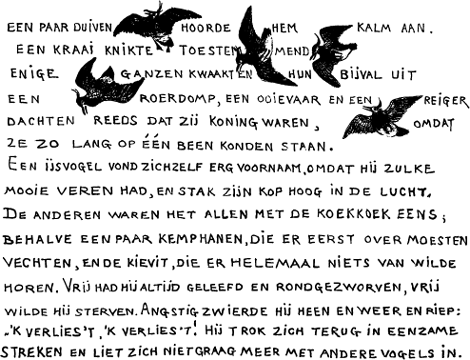 EEN PAAR DUIVEN HOORDE HEM KALM AAN.
EEN KRAAI KNIKTE TOESTEMMEND
ENIGE GANZEN KWAAKTEN HUN BIJVAL UIT
EEN ROERDOMP, EEN OOIEVAAR EN EEN REIGER
DACHTEN REEDS DAT ZIJ KONING WAREN, OMDAT
ZE ZO LANG OP ÉÉN BEEN KONDEN STAAN.
EEN IJSVOGEL VOND ZICHZELF ERG VOORNAAM, OMDAT HIJ ZULKE
MOOIE VEREN HAD, EN STAK ZIJN KOP HOOG IN DE LUCHT.
DE ANDEREN WAREN HET ALLEN MET DE KOEKKOEK EENS;
BEHALVE EEN PAAR KEMPHANEN, DIE ER EERST OVER MOESTEN
VECHTEN, EN DE KIEVIT, DIE ER HELEMAAL NIETS VAN WILDE
HOREN. VRIJ HAD HIJ ALTIJD GELEEFD EN RONDGEZWORVEN, VRIJ
WILDE HIJ STERVEN. ANGSTIG ZWIERDE HIJ HEEN EN WEER EN RIEP:
„'K VERLIES'T, 'K VERLIES'T! HIJ TROK ZICH TERUG IN EENZAME
STREKEN EN LIET ZICH NIET GRAAG MEER MET ANDERE VOGELS IN.